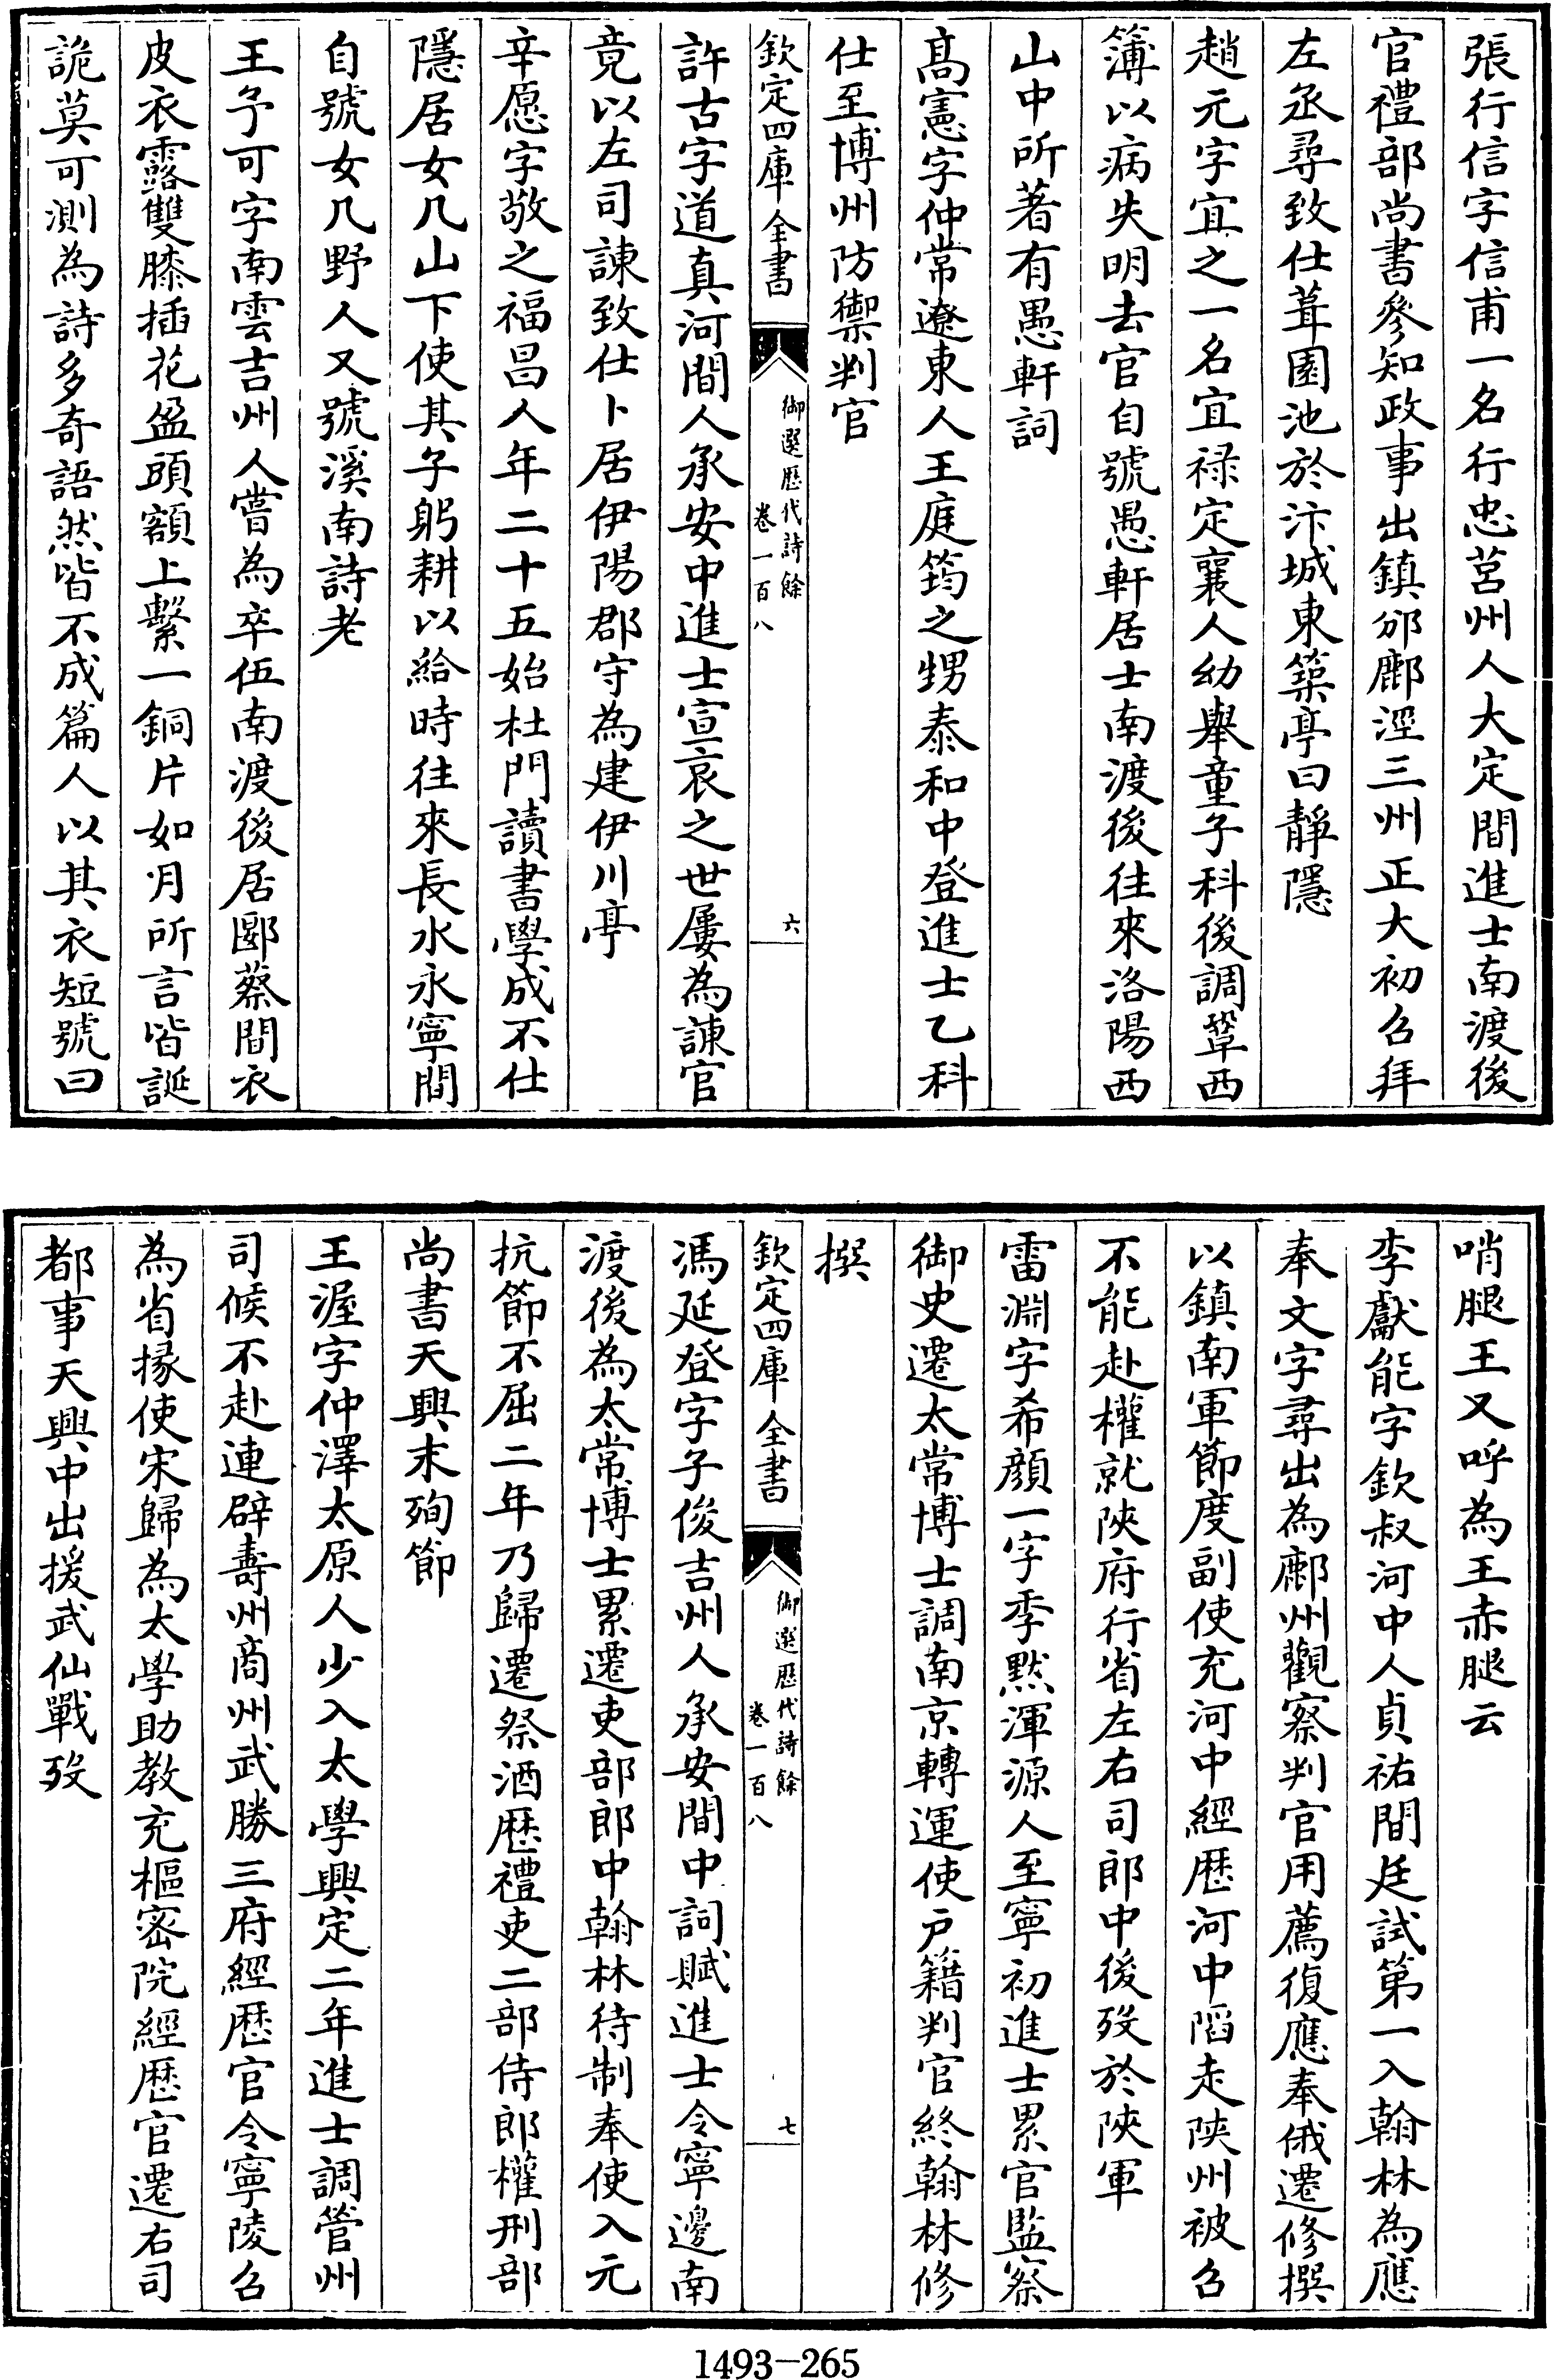 張行信字信甫一名行忠莒州人大定間進士南渡後
官禮部尚書參知政事出鎮邠鄜涇三州正大初召拜
左丞尋致仕葺園池於汴城東築亭曰靜隱
趙元字宜之一名宜祿定襄人幼舉童子科後調鞏西
簿以病失明去官自號愚軒居士南渡後往來洛陽西
山中所著有愚軒詞
髙憲字仲常遼東人王庭筠之甥泰和中登進士乙科
仕至博州防禦判官
欽定四庫全書
御選歷代詩餘
卷一百八
六
許古字道真河間人承安中進士宣哀之世屢為諫官
竟以左司諫致仕卜居伊陽郡守為建伊川亭
辛愿字敬之福昌人年二十五始杜門讀書學成不仕
隱居女几山下使其子躬耕以給時往來長水永寧間
自號女几野人又號溪南詩老
王予可字南雲吉州人嘗為卒伍南渡後居郾蔡間衣
皮衣露雙膝插花盈頭額上繫一銅片如月所言皆誕
詭莫可測為詩多奇語然皆不成篇人以其衣短號曰
哨腿王又呼為王赤腿云
李獻能字欽叔河中人貞祐間廷試第一入翰林為應
奉文字尋出為鄜州觀察判官用薦復應奉俄遷修撰
以鎮南軍節度副使充河中經歷河中陷走陝州被召
不能赴權就陝府行省左右司郎中後歿於陝軍
雷淵字希顏一字季黙渾源人至寧初進士累官監察
御史遷太常博士調南京轉運使户籍判官終翰林修
撰
欽定四庫全書
御選歷代詩餘
卷一百八
七
馮延登字子俊吉州人承安間中詞賦進士令寧邊南
渡後為太常博士累遷吏部郎中翰林待制奉使入元
抗節不屈二年乃歸遷祭酒歷禮吏二部侍郎權刑部
尚書天興末殉節
王渥字仲澤太原人少入太學興定二年進士調管州
司候不赴連辟壽州商州武勝三府經歷官令寧陵召
為省掾使宋歸為太學助教充樞密院經歷官遷右司
都事天興中出援武仙戰歿
1493-265